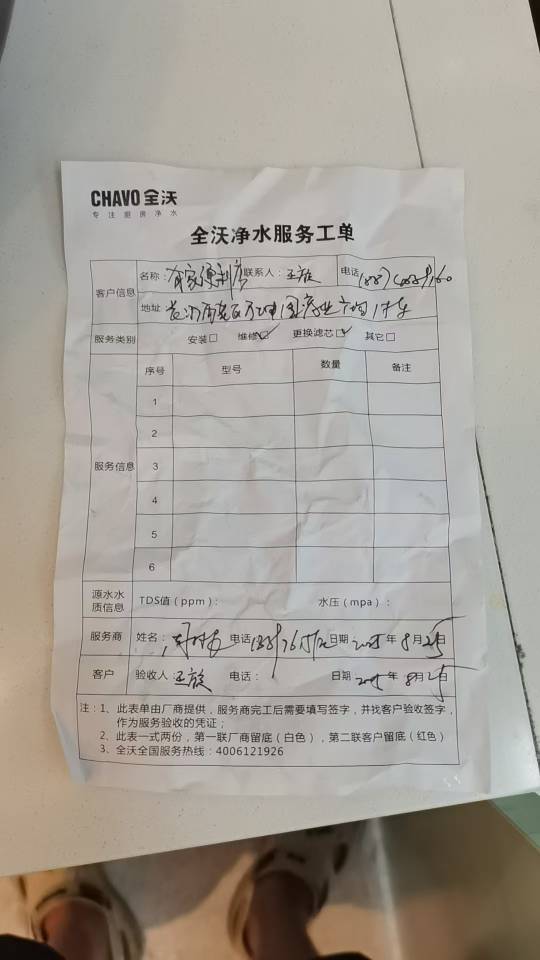 CHAVO 全沃
专注厨房净水
全沃净水服务工单
客户信息 名称: 有家便利店 联系人: 王旋 电话
地址
服务类别 安装□ 维修☑ 更换滤芯☑ 其它□
服务信息 序号 型号 数量 备注
1
2
3
4
5
6
源水水质信息 TDS值(ppm): 水压(mpa):
服务商 姓名: 电话 日期 2025年8月25日
客户 验收人 王旋 电话: 日期 2025年8月25日
注:1、此表单由厂商提供,服务商完工后需要填写签字,并找客户验收签字,
作为服务验收的凭证;
2、此表一式两份,第一联厂商留底(白色),第二联客户留底(红色)
3、全沃全国服务热线:4006121926